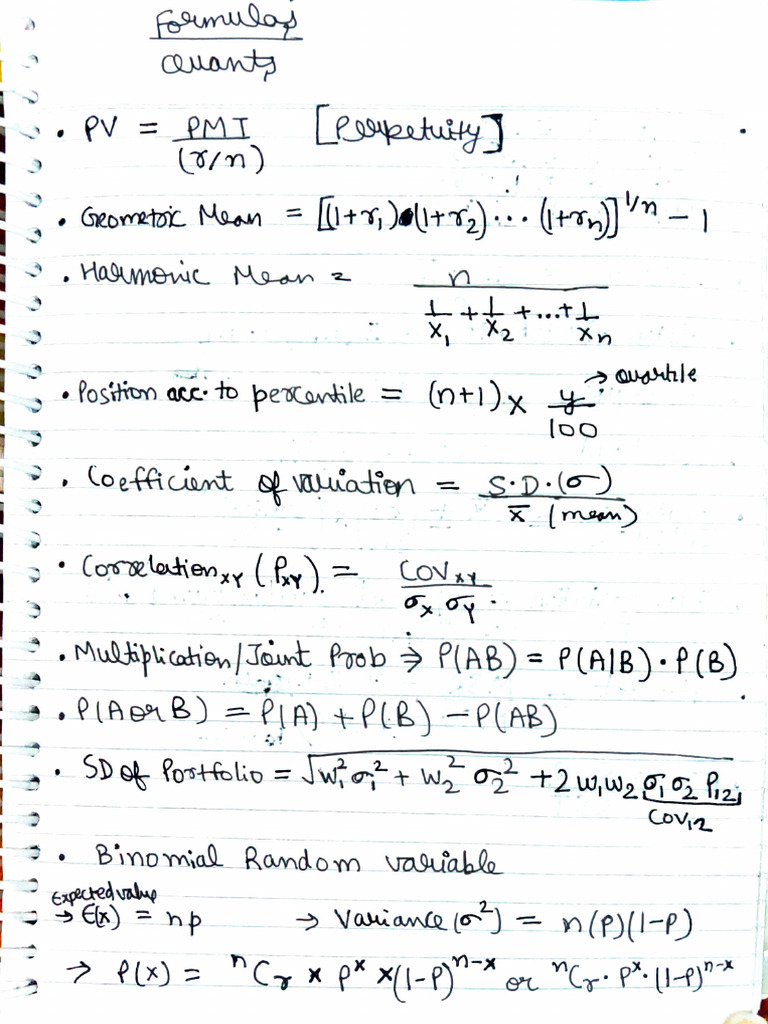 Formulas
Quants
• PV = PMT / (r/n) [Perpetuity]
• Geometric Mean = [(1+r₁)•(1+r₂)...(1+rₙ)]^1/n − 1
• Harmonic Mean = n / (1/x₁ + 1/x₂ + ...+ 1/xₙ)
• Position acc. to percentile = (n+1) × y/100 → quartile
• Coefficient of variation = S.D.(σ) / x̄ (mean)
• Correlation XY (ρXY) = COV XY / σX σY
• Multiplication/Joint Prob → P(AB) = P(A|B)•P(B)
• P(A or B) = P(A) + P(B) − P(AB)
• SD of Portfolio = √w₁²σ₁² + w₂²σ₂² + 2w₁w₂ σ₁σ₂ρ₁₂
COV₁₂
• Binomial Random variable
Expected value
→ E(x) = np → Variance (σ²) = n(P)(1−P)
→ P(x) = ⁿCr × P^x × (1−P)^n−x or ⁿCr • P^x • (1−P)^n−x